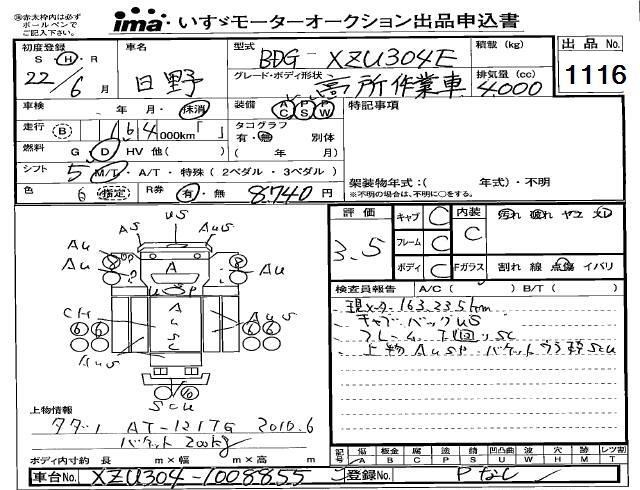 ※赤太枠内は必ず
ボールペンで
ご記入下さい。
ima いすゞモーターオークション出品申込書
初度登録
S・H・R
22/6月
車名
日野
型式
BDG-XZU304E
グレード・ボディ形状
高所作業車
積載 (kg)
排気量 (cc)
4.000
出品No.
1116
車検 年・月・抹消
装備 AC PS PW
特記事項
走行 B 164 000km「 」
タコグラフ
有・無 別体
( 年 月)
燃料 G D HV 他( )
シフト 5 M/T・A/T・特殊(2ペダル・3ペダル)
架装物年式:( 年式)・不明
※不明の場合は、不明に○をする。
色 6 指定 R券 有・無 8740円
評価
3.5
キャブ C
フレーム C
ボディ C
内装
C
Fガラス
汚れ 破れ ヤコ
割れ 線 点傷 イバリ
検査員報告 A/C( ) B/T( )
現メーター163,235km
キャブバックUS
フレーム下回りSC
US
AS
AUS
AU
AU
A
AU
CH
AUS
SCU
上物情報
タダノ AT-121TG 2010.6
バケット200kg
ボディ内寸約 長 m×幅 m×高 m
記号
傷 A
板金 B
腐 C
塗 P
錆 S
凹凸曲 U
波 W
穴 H
跡 M
レツ割 T
車台No. XZU304-1008855
登録No. Pなし